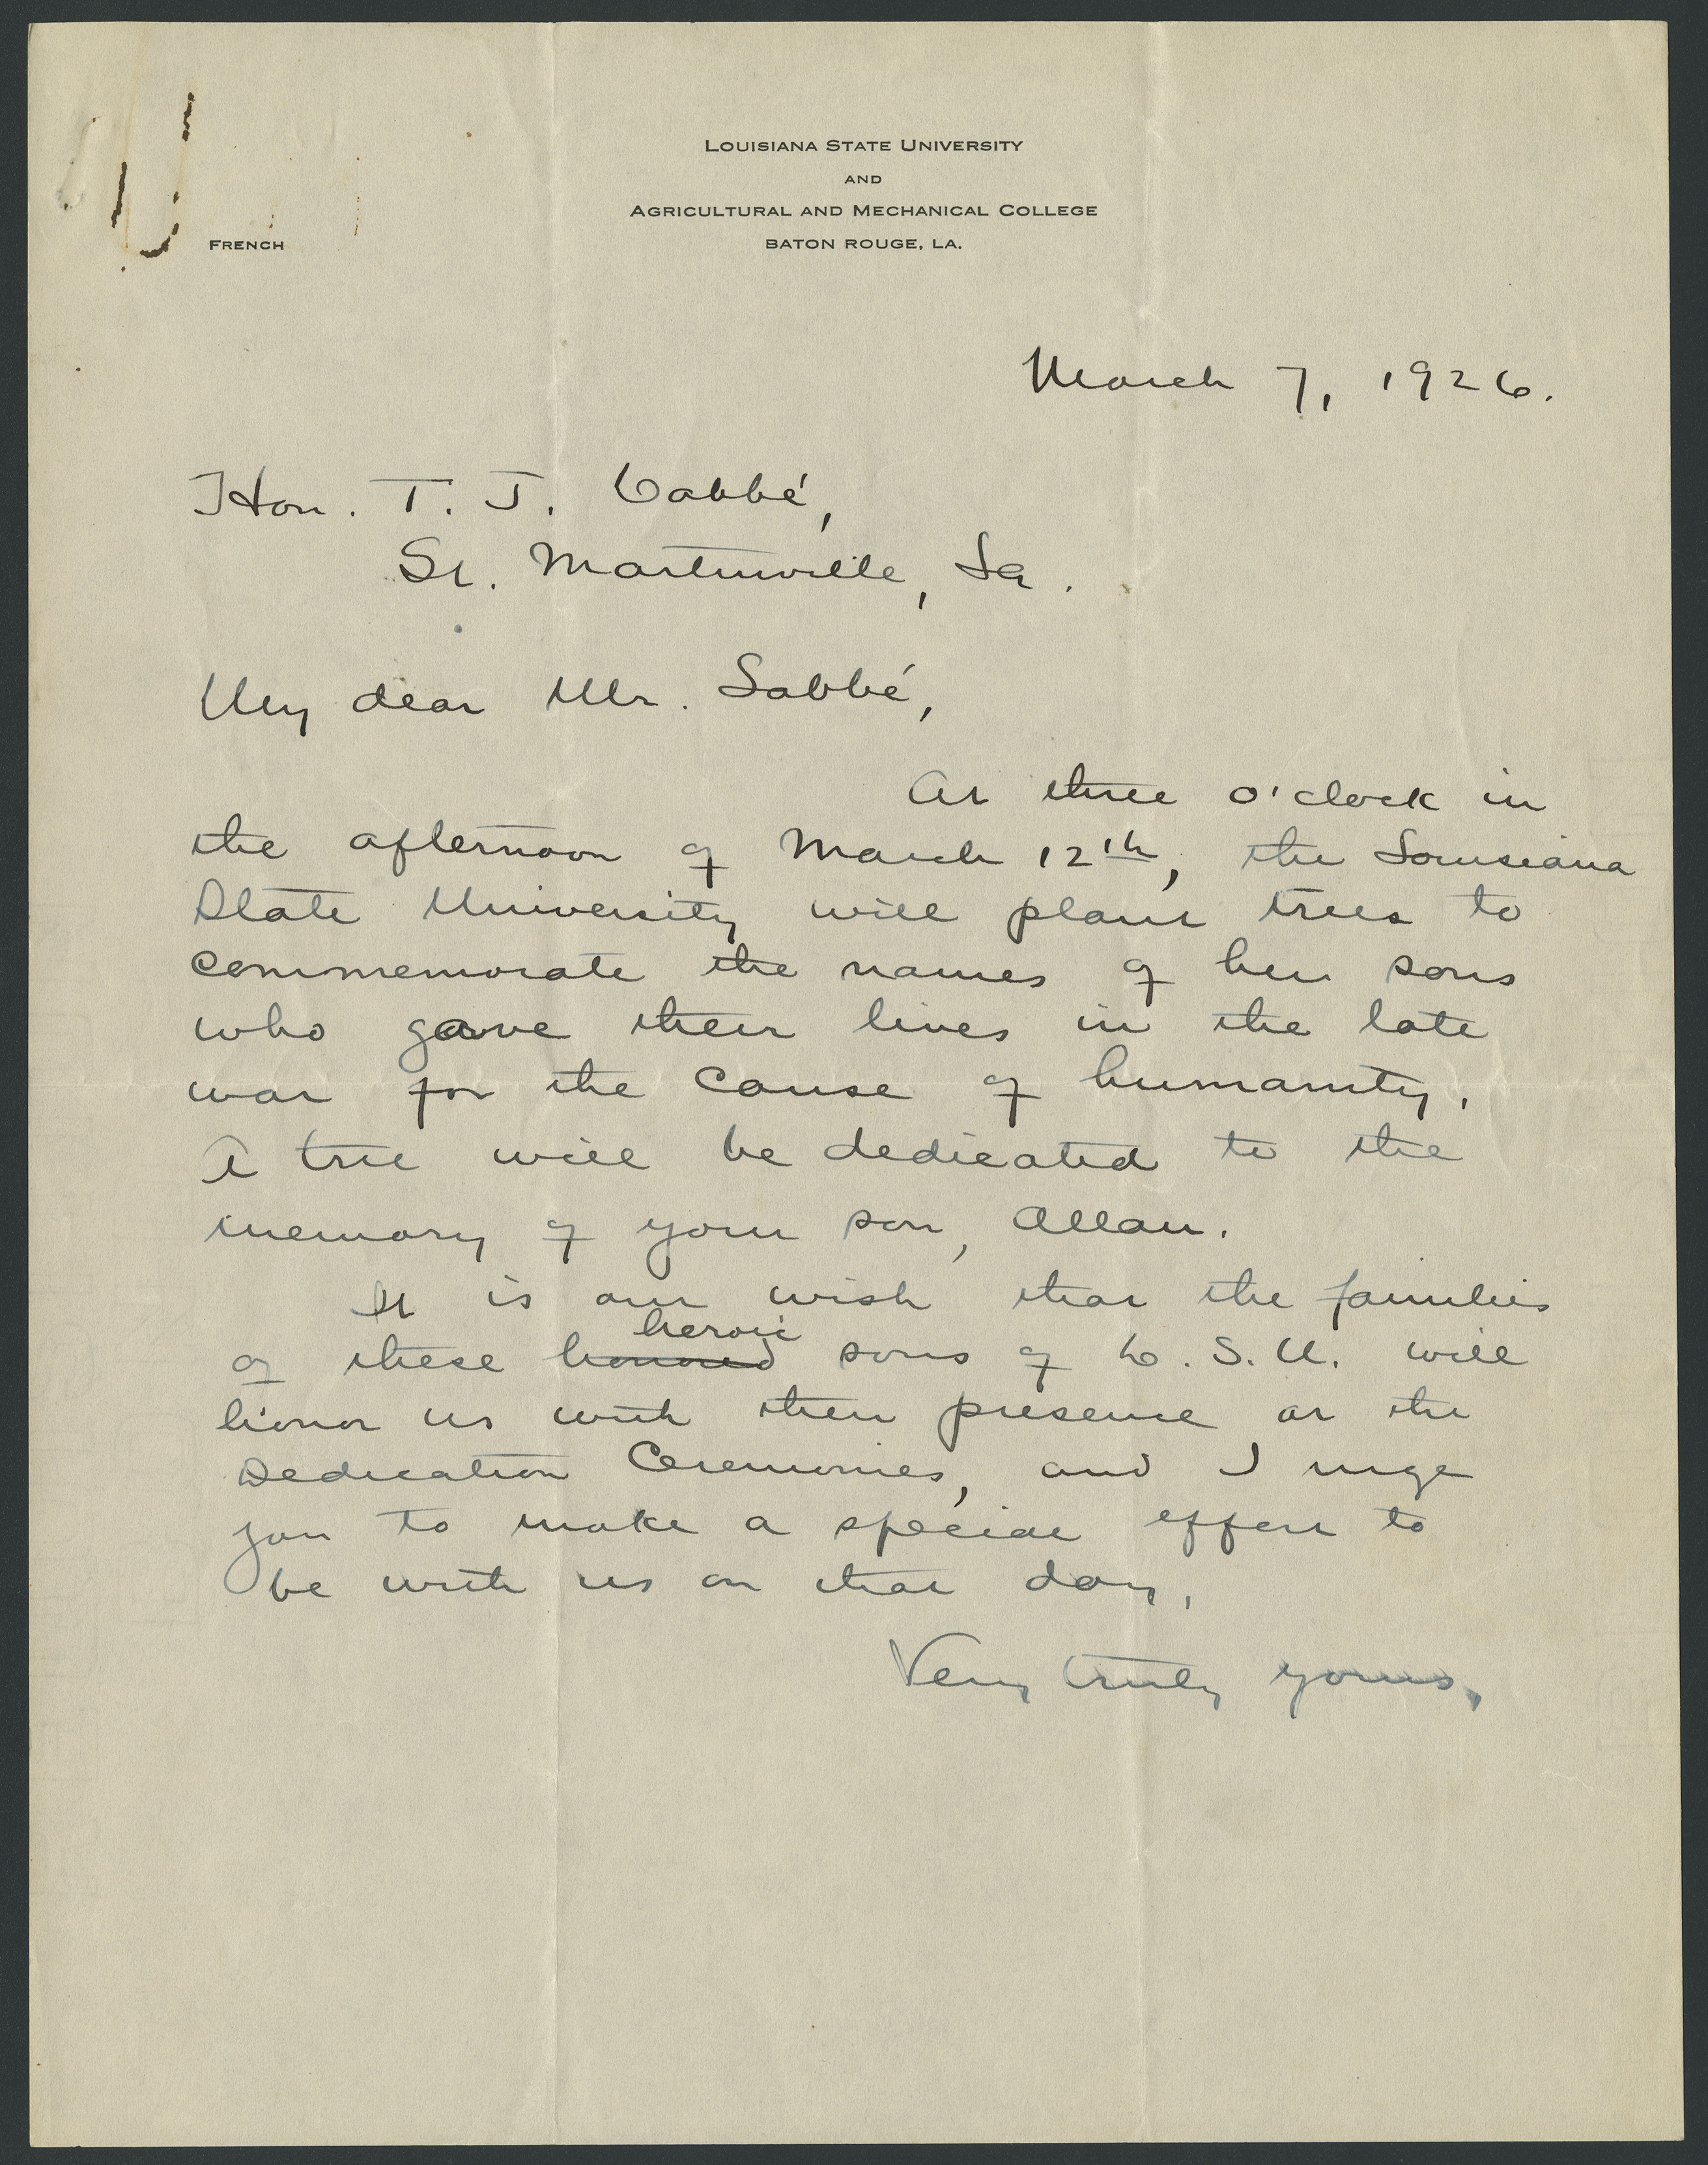 LOUISIANA STATE UNIVERSITY
AND
AGRICULTURAL AND MECHANICAL COLLEGE
FRENCH
BATON ROUGE, LA.
March 7, 1926.
Hon. T. J. Labbé,
St. Martinville, La.
My dear Mr. Labbé,
At three o'clock in
the afternoon of March 12th, the Louisiana
State University will plant trees to
commemorate the names of her sons
who gave their lives in the late
war for the cause of humanity.
A tree will be dedicated to the
memory of your son, Allan.
It is our wish that the families
heroic
of these honored sons of L. S. U. will
honor us with their presence at the
Dedication Ceremonies, and I urge
you to make a special effort to
be with us on that day.
Very truly yours,